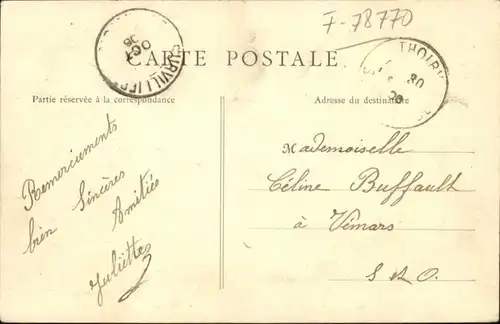 F-78770
CARTE POSTALE
Partie réservée à la correspondance
Adresse du destinataire
THOIRY
OCT
06
Remerciements
bien Sincères
Amitiés
Juliette
Mademoiselle
Céline Buffault
à Vémars
S & O.